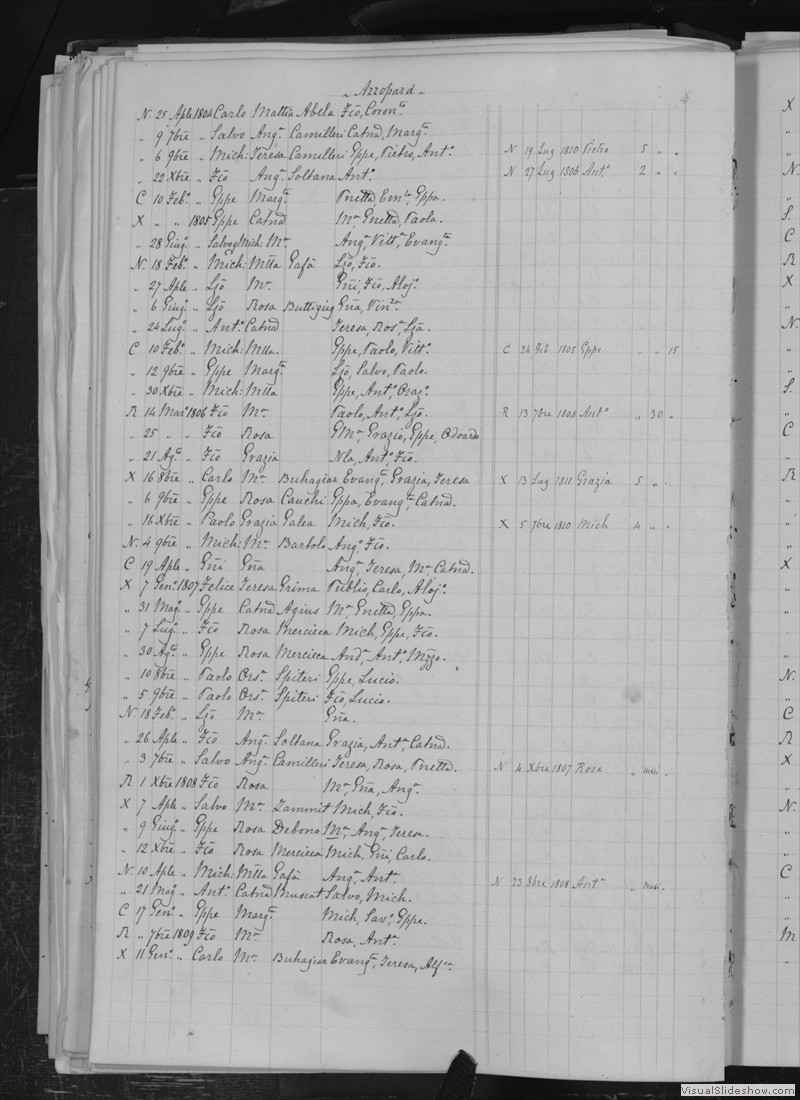 Azzopard
N. 25 Aple 1804 Carlo Mattia Abela Fio, Coron.ta
" 9 7bre " Salvo Ang.a Camilleri Catnã, Marg.a
" 6 9bre " Mich: Teresa Camilleri Gppe, Pietro, Ant.o N 19 Lug 1810 Pietro 5 " "
" 22 Xbre " Fio Ang.a Soltana Ant.o N 27 Lug 1806 Ant.o 2 " "
C 10 Feb.o " Gppe Marg.ta Pnetta, Em.la, Gppa.
X " " 1805 Gppe Catnã M.a, Gnetta, Paola.
" 28 Giug.o " Salvo Mich: M.a Ang.a, Vitt.a, Evang.ta
N. 18 Feb.o " Mich: Mtta Gafà Ljõ, Fio.
" 27 Aple " Ljõ M.a Gni, Fio, Aloj.o
" 6 Giug.o " Ljõ Rosa Buttigieg Gña, Vin.za
" 24 Lug.o " Ant.o Catnã Teresa, Ros.a, Ljã.
C 10 Feb.o " Mich: Mtta. Gppe, Paolo, Vitt.o C 24 Feb 1805 Gppe " " 15
" 12 9bre " Gppe Marg.ta Ljõ, Salvo, Paolo.
" 30 Xbre " Mich: Mtta Gppe, Ant.o, Oraz.o
R 14 Mar.o 1806 Fio M.a Paolo, Ant.o, Ljõ. R 13 7bre 1808 Ant.o " 30 "
" 25 " " Fio Rosa GM.a, Grazio, Gppe, Odoardo
" 21 Ag.o " Fio Grazia Nla, Ant.o, Fio.
X 16 8bre " Carlo M.a Buhagiar Evang.ta, Grazia, Teresa X 13 Lug 1811 Grazia 5 " "
" 6 9bre " Gppe Rosa Cauchi Gppa, Evang.ta, Catnã.
" 16 Xbre " Paolo Grazia Galea Mich, Fio. X 5 7bre 1810 Mich 4 " "
N. 4 9bre " Mich: M.a Bartolo Ang.o, Fio.
C 19 Aple " Gni Gña Ang.a, Teresa, M.a Catnã.
X 7 Gen.o 1807 Felice Teresa Grima Publio, Carlo, Aloj.o
" 31 Mag.o " Gppe Catnã Agius M.a Gnetta, Gppa.
" 7 Lug.o " Fio Rosa Mercieca Mich, Gppe, Fio.
" 30 Ag.o " Gppe Rosa Mercieca And.a, Ant.o, Mzzo.
" 10 8bre " Paolo Ors.a Spiteri Gppe, Lucio.
" 5 9bre " Paolo Ors.a Spiteri Fio, Lucio.
N. 18 Feb.o " Ljõ M.a Gña.
" 26 Aple " Fio Ang.a Soltana Grazia, Ant.a Catnã.
" 3 7bre " Salvo Ang.a Camilleri Teresa, Rosa, Pnetta. N 4 Xbre 1807 Rosa " mesi "
R 1 Xbre 1808 Fio Rosa M.a, Gña, Ang.a
X 7 Aple " Salvo M.a Zammit Mich, Fio.
" 9 Giug.o " Gppe Rosa Debono M.a, Ang.a, Teresa.
" 12 Xbre " Fio Rosa Mercieca Mich, Gni, Carlo.
N. 10 Aple " Mich: Mtta Gafà Ang.a, Ant.a N 23 8bre 1808 Ant.a " mesi "
" 21 Mag.o " Ant.o Catnã Muscat Salvo, Mich.
C 17 Gen.o " Gppe Marg.ta Mich, Sav.o, Gppe.
R " 7bre 1809 Fio M.a Rosa, Ant.a
X 11 Gen.o " Carlo M.a Buhagiar Evang.ta, Teresa, Alf.
VisualSlideshow.com